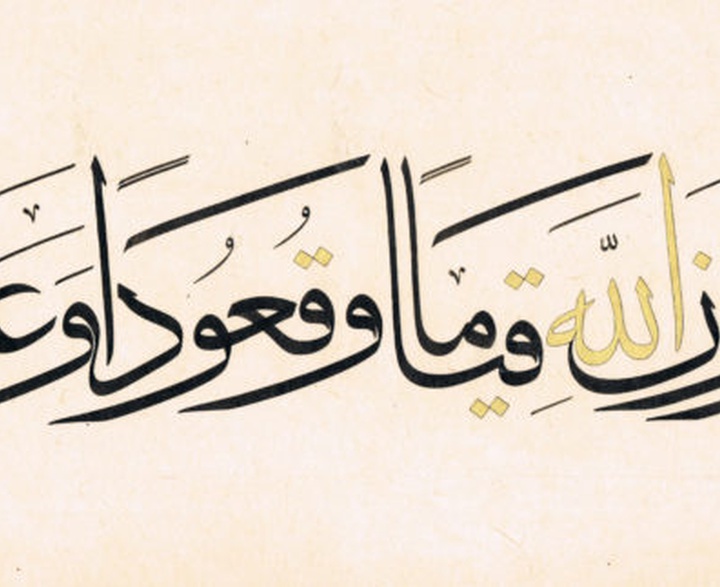 اللّهَ قِيَاماً وَقُعُوداً